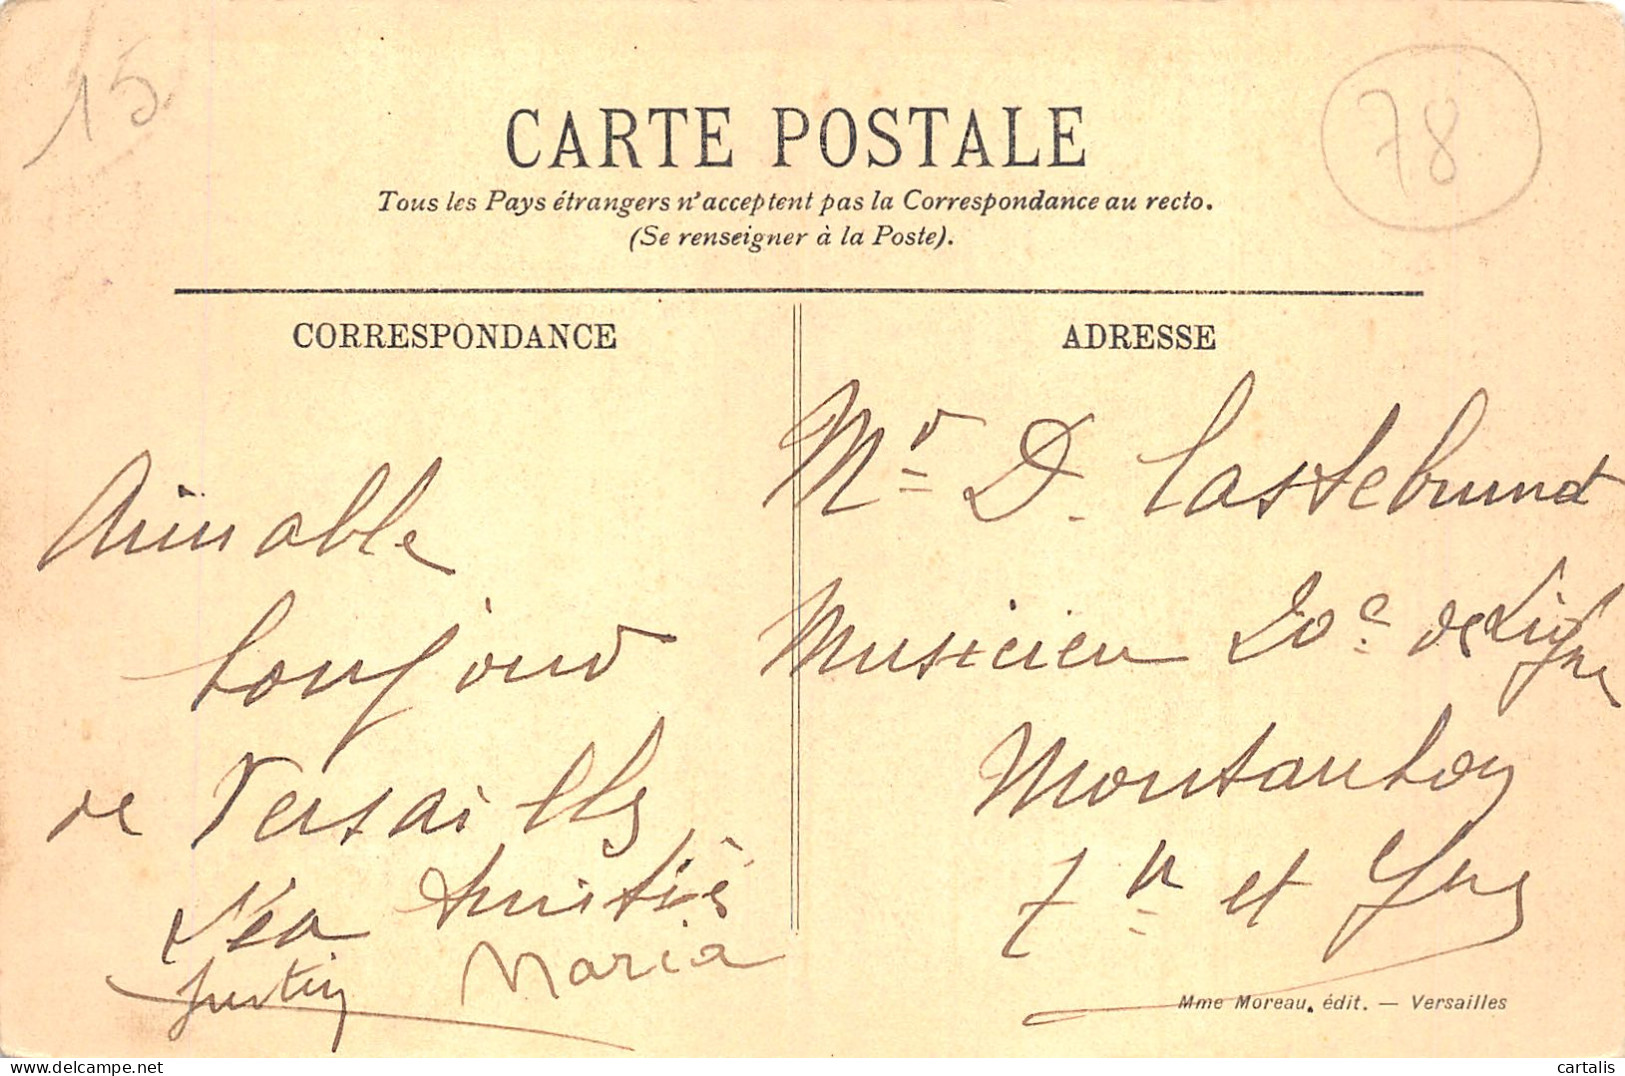 15
78
CARTE POSTALE
Tous les Pays étrangers n'acceptent pas la Correspondance au recto.
(Se renseigner à la Poste).
CORRESPONDANCE
Aimable
de Versailles
Léa Amitiés
Justin Maria
ADRESSE
Mr D. Castebrunet
Musicien 20e de Ligne
Montauban
Tn et
Mme Moreau, édit. — Versailles
cartalis
delcampe.net